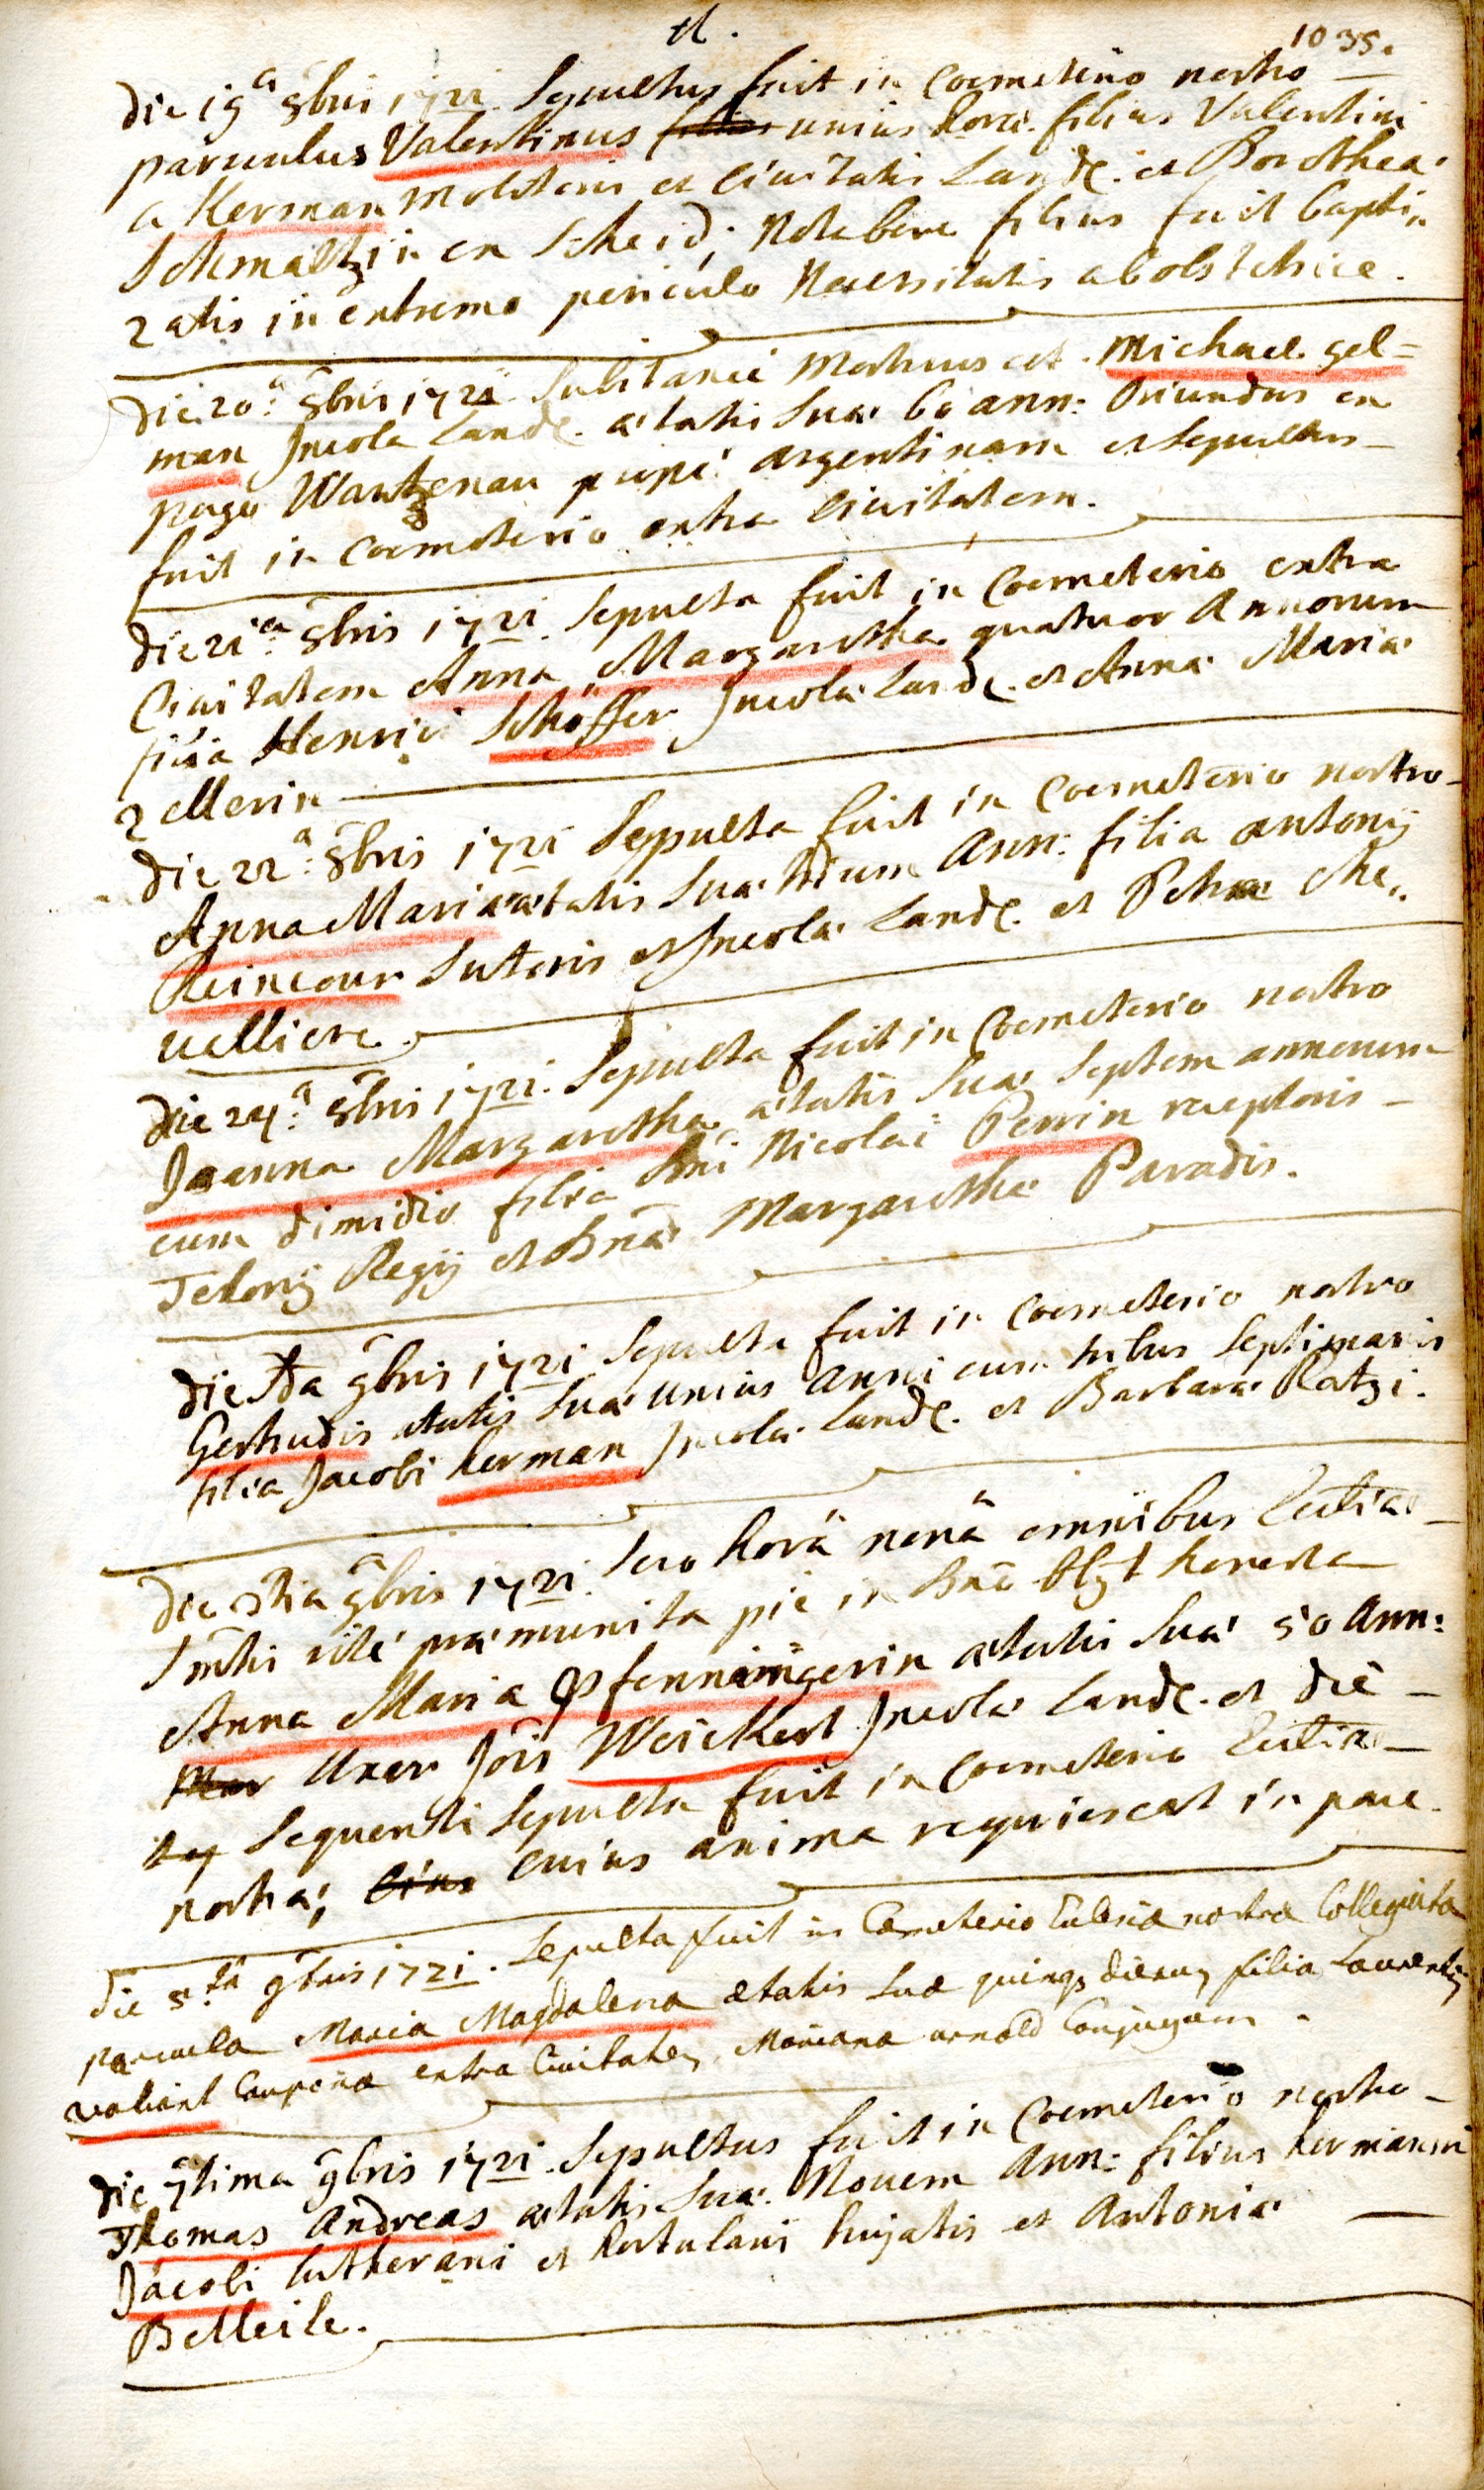 1035.
die 19ᵃ 8bris 1721. Sepultus fuit in Coemeterio nostro
parvulus Valentinus unius horæ filius Valentini
a Kerman molitoris et Civitatis Landæ. et Dorotheæ
Schmaltzin ex Scheid; Nota bene filius fuit bapti„
zatis in extremo periculo Necessitatis ab obstetrice.
Die 20.ᵃ 8bris 1721 Subitanee Mortuus est Michael gel=
man Incola Landæ. ætatis Suæ 60 ann: Oriundus ex
pago Wantzenau prope argentinam et Sepultus
fuit in Coemeterio extra Civitatem.
Die 21ᵃ 8bris 1721. Sepulta fuit in Coemeterio extra
Civitatem Anna Margaretha quatuor Annorum
filia Henrici Schöffer Incolæ Landæ. et Annæ Mariæ
Zellerin
Die 22ᵃ: 8bris 1721 Sepulta fuit in Coemeterio nostro
Anna Maria ætatis Suæ trium Ann: filia antonij
Reincour Sutoris et Incolæ Landæ. et Petræ Che„
velliere.
Die 24.ᵃ 8bris 1721. Sepulta fuit in Coemeterio nostro
Joanna Margaretha ætatis Suæ Septem annorum
cum dimidio filia Dni Nicolai Perrin receptoris
Telonij Regij et Dnæ Margarethæ Paradis.
Die 9bris 1721 Sepulta fuit in Coemeterio nostro
Gertrudis ætatis Suæ unius anni cum tribus Septimanis
filia Jacobi Kerman Incolæ Landæ. et Barbaræ Ratzi.
Die 9bris 1721. Sero horâ nonâ omnibus Ecclîæ
Smtis rite præmunita pie in Dno obyt honesta
Anna Maria Pfenningerin ætatis Suæ 50 Ann:
Uxor Jois Weickert Incolæ Landæ. et die
Sequenti Sepulta fuit in Coemeterio Ecclîæ
nostræ; cuius anima requiescat in pace.
die 5ta 9bris 1721. Sepulta fuit in Cæmeterio Eclesiæ nostræ Collegiatæ
parvula Maria Magdalena ætatis Suæ quinq3 dierum filia Laurentij
valiant Cauponæ extra Civitatem, Marianæ arnold Conjugum.
Die 7tima 9bris 1721. Sepultus fuit in Coemeterio nostro
Thomas Andreas ætatis Suæ Novem Ann: filius hermanni
Jacobi lutherani et hortulani hujatis et Antoniæ
Belleile.